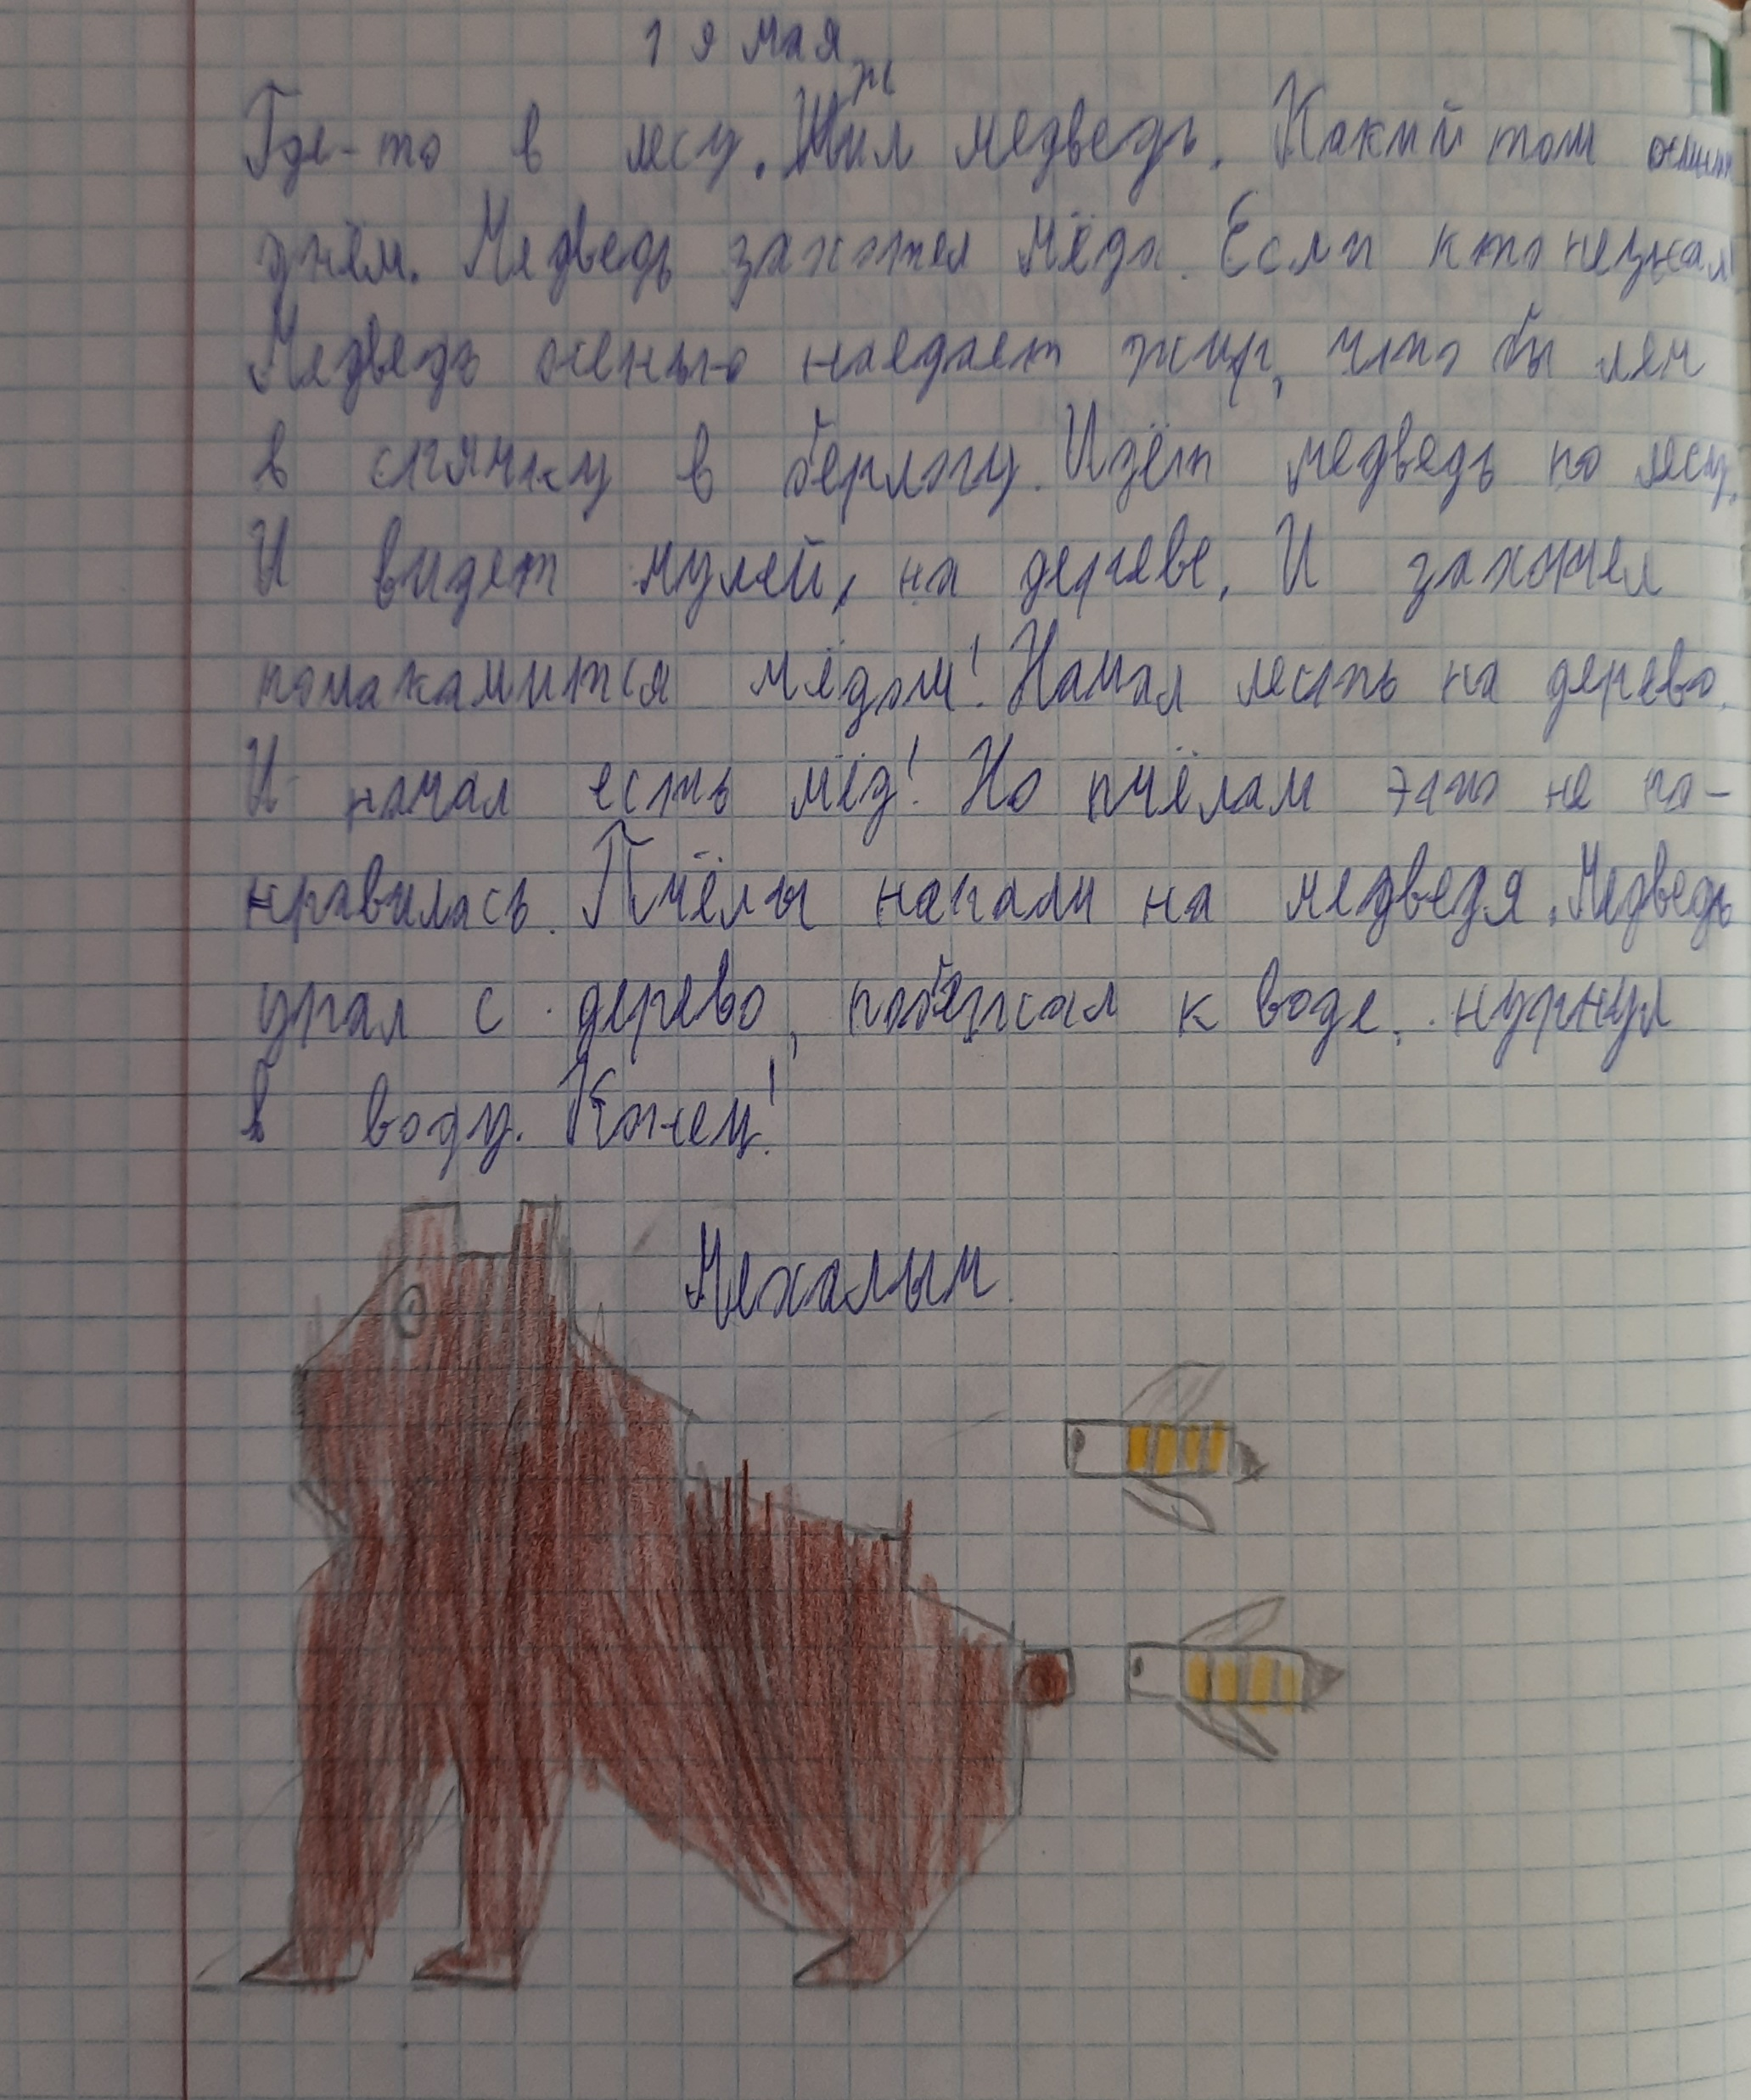 19 мая
Где-то в лесу. Жил медведь. Какий том осиним
днём. Медведь захотел мёда. Если кто незнал
Медведь осенью наедает жир, что бы леч
в спячку в берлогу. Идёт медведь по лесу.
И видет улей, на дереве. И захотел
полакамится мёдом! Начал лесть на дерево.
И начал есть мёд! Но пчёлам это не по-
нравилась. Пчёлы напали на медведя. Медведь
упал с дерево, побежал к воде. нурнул
в воду. Конец!
Мехалыч.